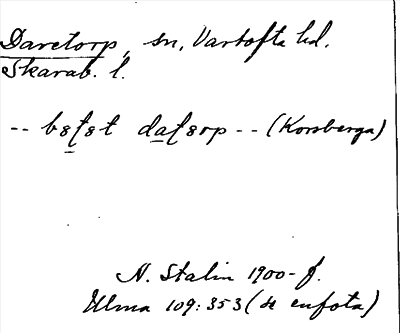 Daretorp, sn, Vartofta hd.
Skarab. l.
-- bꞩſꞩt daſꞩrp -- (Korsberga)
N. Stalin 1900-f.
Ulma 109:353 (se enfota)